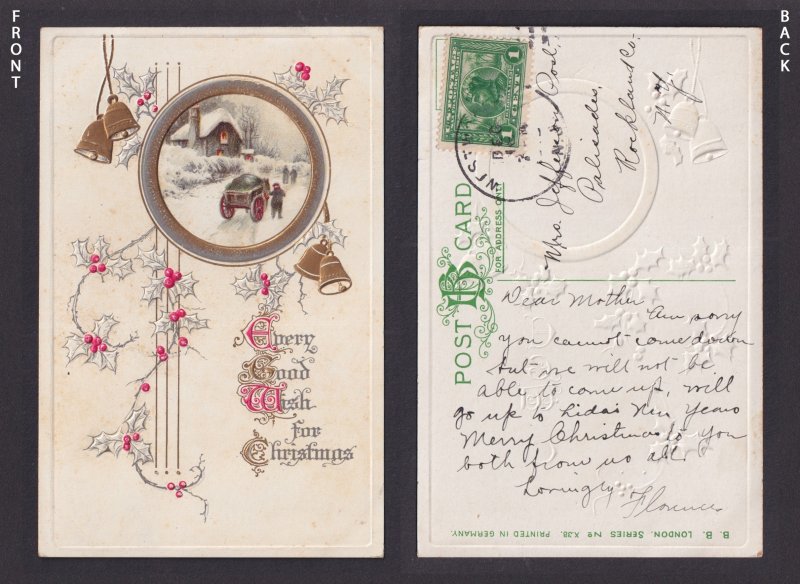 FRONT
Every
Good
Wish
for
Christmas
BACK
U.S. POSTAGE
1 CENT 1
DEC
Mrs. Jefferson Post,
Palisades,
Rockland Co.
N.Y.
POST CARD
FOR ADDRESS ONLY
Dear Mother Am sorry
you cannot come down
but we will not be
able to come up, will
go up to Lida's New Years
Merry Christmas to you
both from us all.
Lovingly
Florence
B. B. LONDON. SERIES No X.38. PRINTED IN GERMANY.